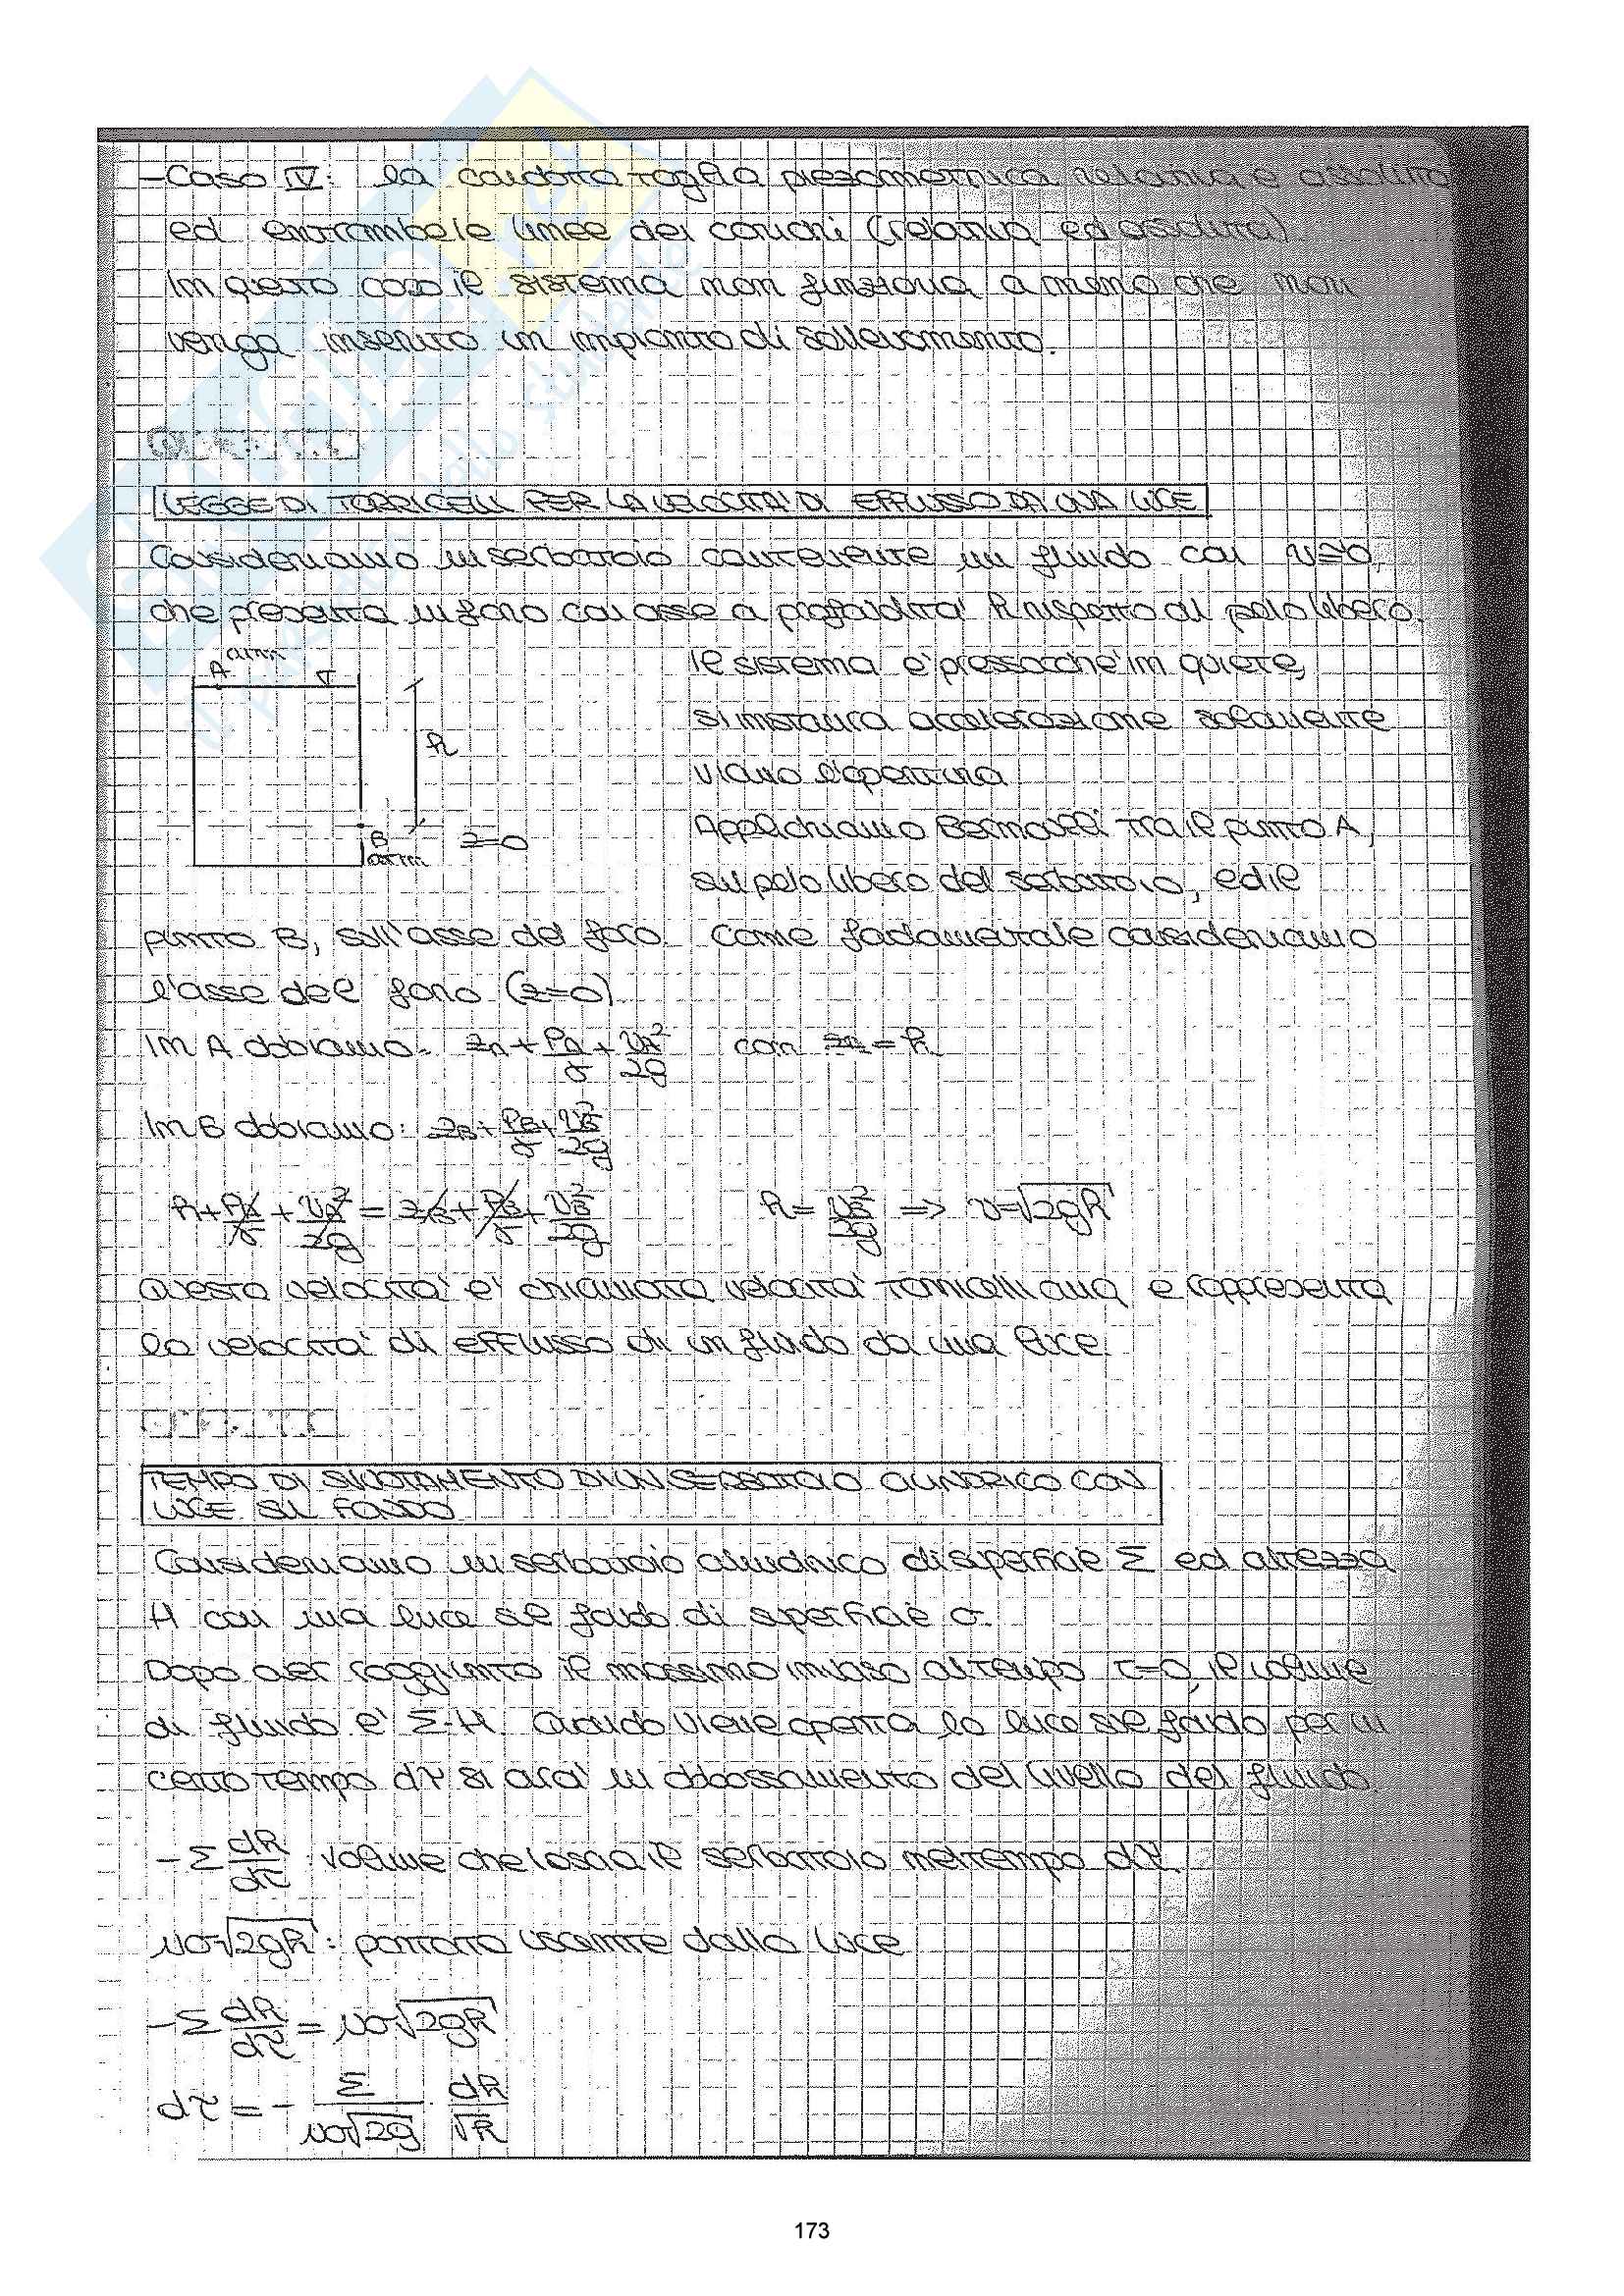 - Caso IV: la condotta taglia piezometrica relativa e assoluta
ed entrambe le linee dei carichi (relativa ed assoluta)
In questo caso il sistema non funziona a meno che non
venga inserito un impianto di sollevamento.
LEGGE DI TORRICELLI PER LA VELOCITA' DI EFFLUSSO DA UNA LUCE
Consideriamo un serbatoio contenente un fluido con v≅0,
che presenta un foro con asse a profondita' h rispetto al pelo libero.
A atm
h
B
atm
z=0
Il sistema e' pressocche' in quiete,
si instaura accelerazione solamente
vicino l'apertura
Applichiamo Bernoulli tra il punto A,
sul pelo libero del serbatoio, ed il
punto B, sull'asse del foro. Come fondamentale consideriamo
l'asse del foro (z=0)
In A abbiamo: zA + PA/γ + vA²/2g con zA = h
In B abbiamo: zB + PB/γ + vB²/2g
h + PA/γ + vA²/2g = zB + PB/γ + vB²/2g h = vB²/2g => v=√2gh
Questa velocita' e' chiamata velocita' torricelliana e rappresenta
la velocita' di efflusso di un fluido da una luce.
TEMPO DI SVUOTAMENTO DI UN SERBATOIO CILINDRICO CON
LUCE SUL FONDO
Consideriamo un serbatoio cilindrico di superficie Σ ed altezza
H con una luce sul fondo di superficie σ.
Dopo aver raggiunto il massimo invaso al tempo τ=0, il volume
di fluido e' Σ·H. Quando viene aperta la luce sul fondo, per un
certo tempo dτ si avra' un abbassamento del livello del fluido.
- Σ dh/dτ : volume che lascia il serbatoio nel tempo dτ
μσ√2gh : portata uscente dalla luce
- Σ dh/dτ = μσ√2gh
dτ = - Σ/μσ√2g · dh/√h
173